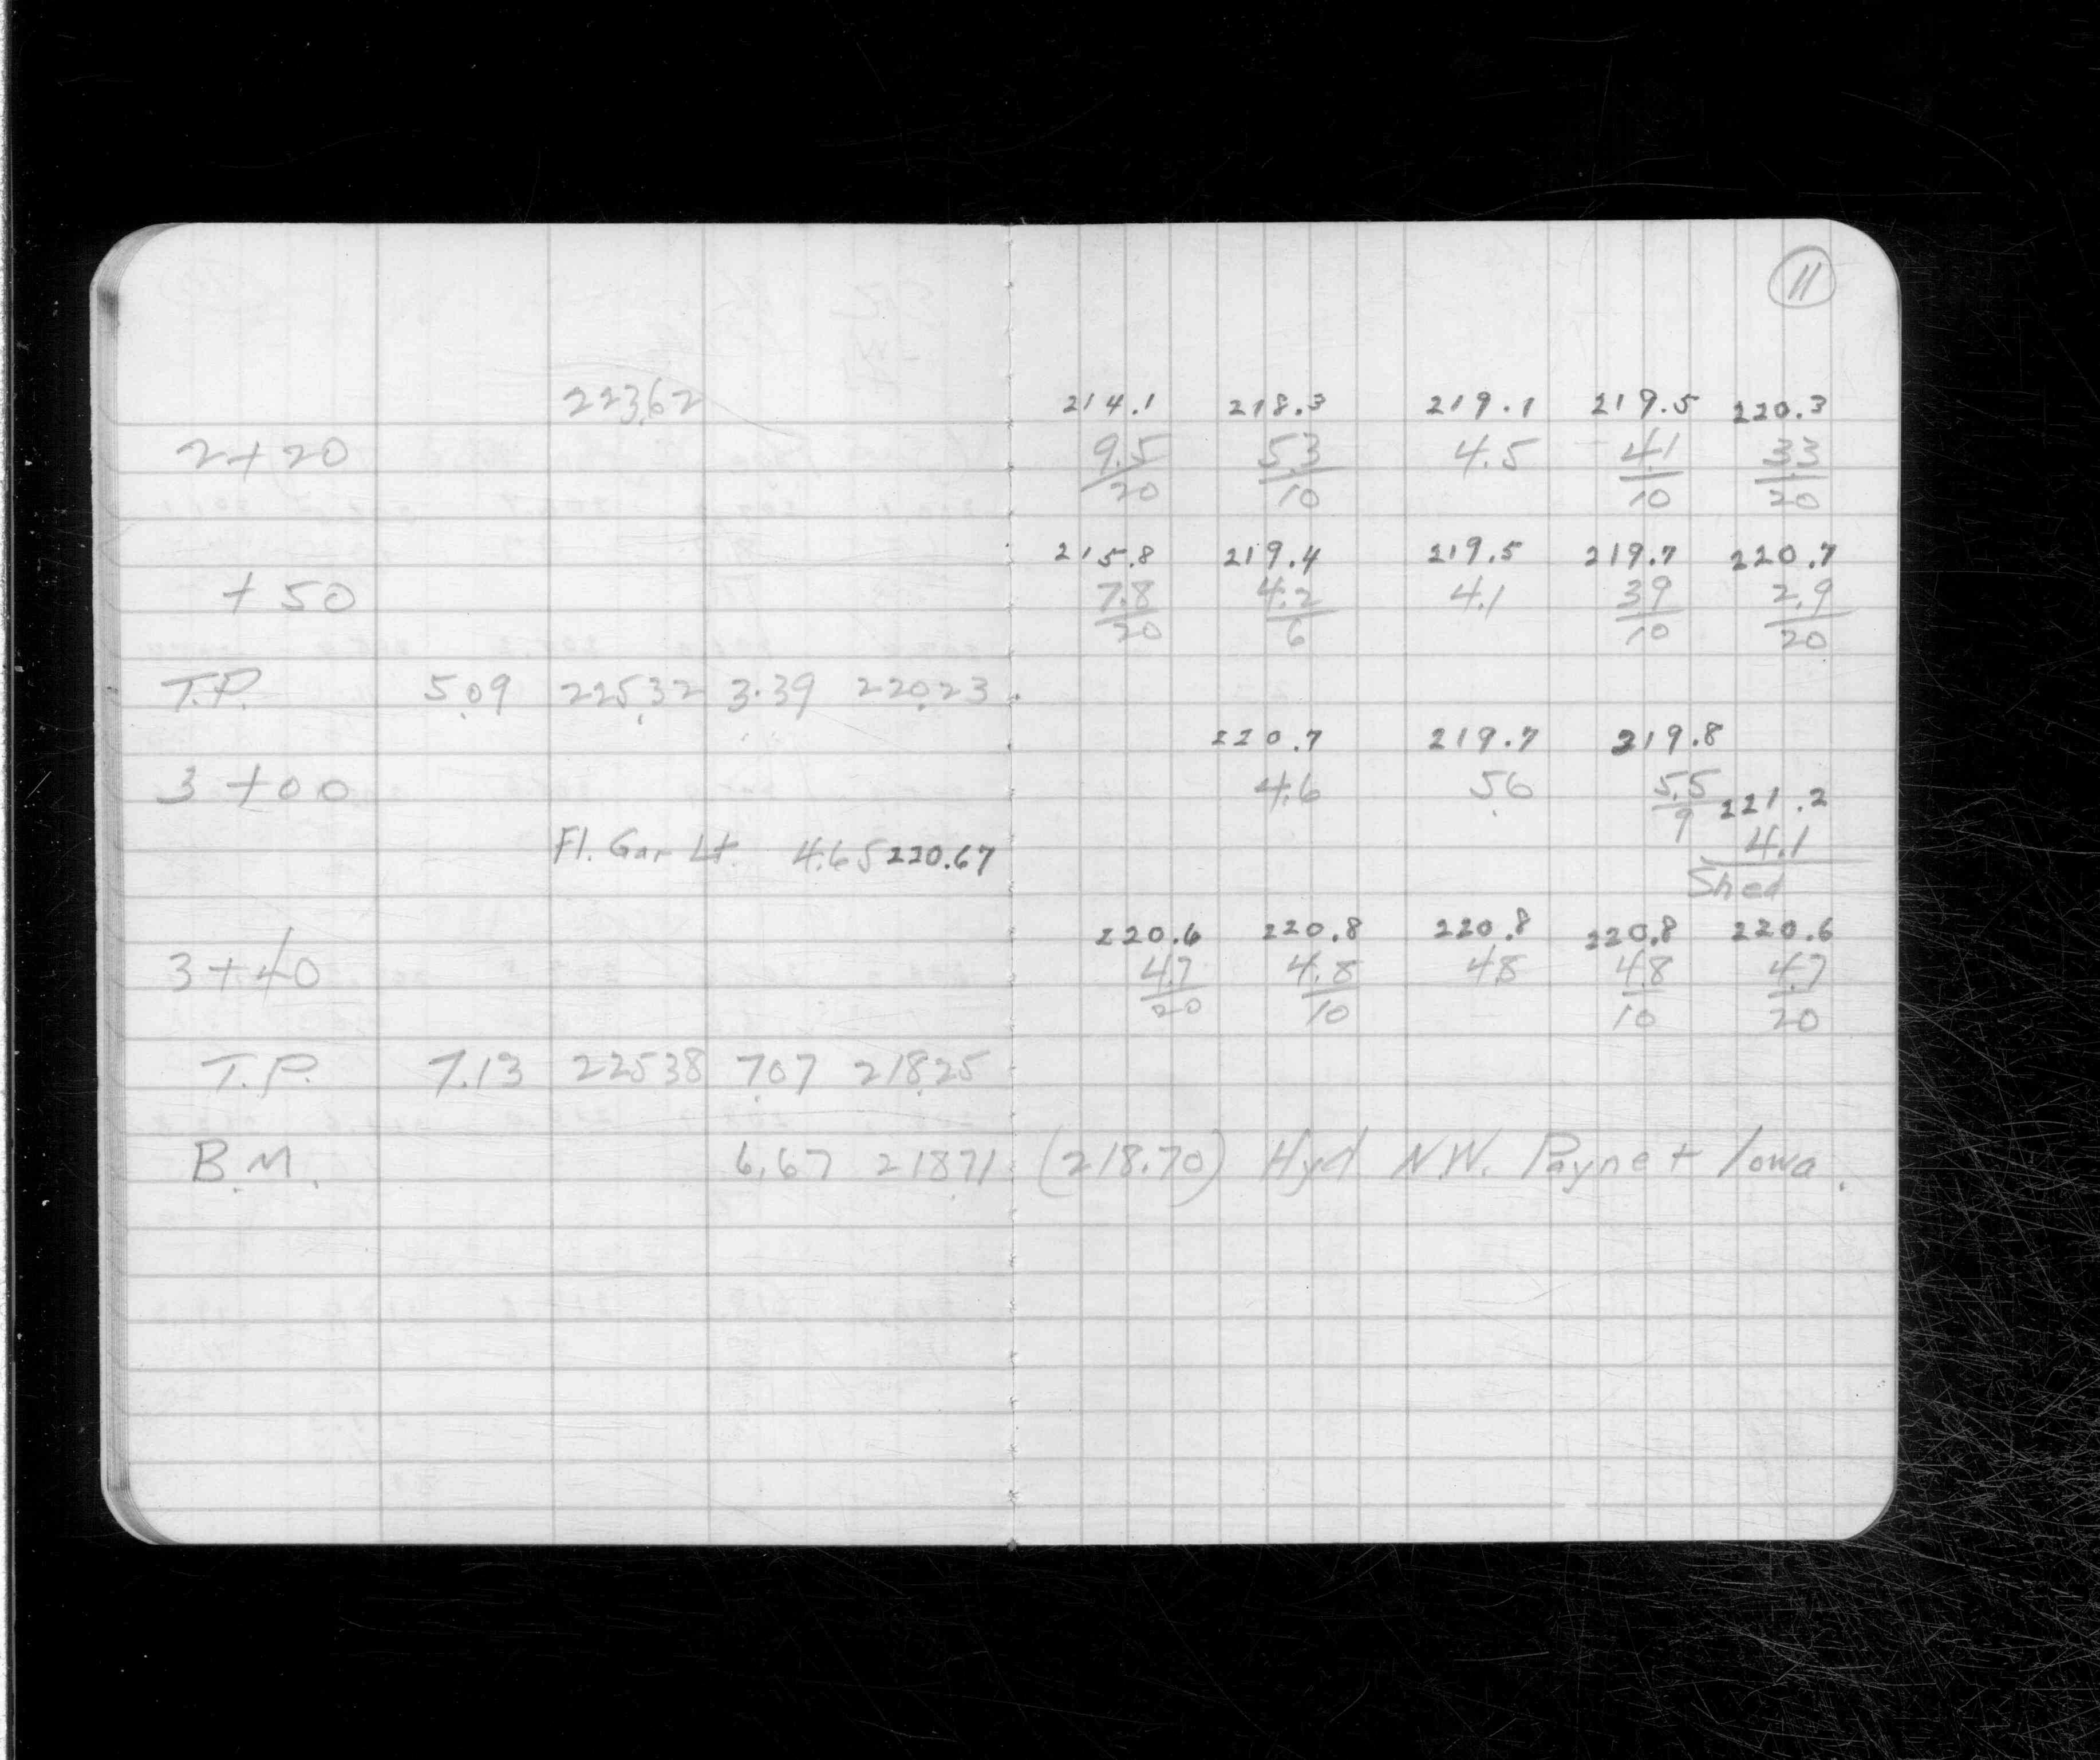 11
223.62 214.1 218.3 219.1 219.5 220.3
2+20 9.5/20 5.3/10 4.5 4.1/10 3.3/20
215.8 219.4 219.5 219.7 220.7
+50 7.8/20 4.2/6 4.1 3.9/10 2.9/20
T.P. 5.09 225.32 3.39 220.23
220.7 219.7 219.8
3+00 4.6 5.6 5.5/9 221.2
Fl. Gar Lt. 4.65 220.67 4.1/Shed
220.6 220.8 220.8 220.8 220.6
3+40 4.7/20 4.8/10 4.8 4.8/10 4.7/20
T.P. 7.13 225.38 7.07 218.25
B.M. 6.67 218.71 (218.70) Hyd N.W. Payne + Iowa.